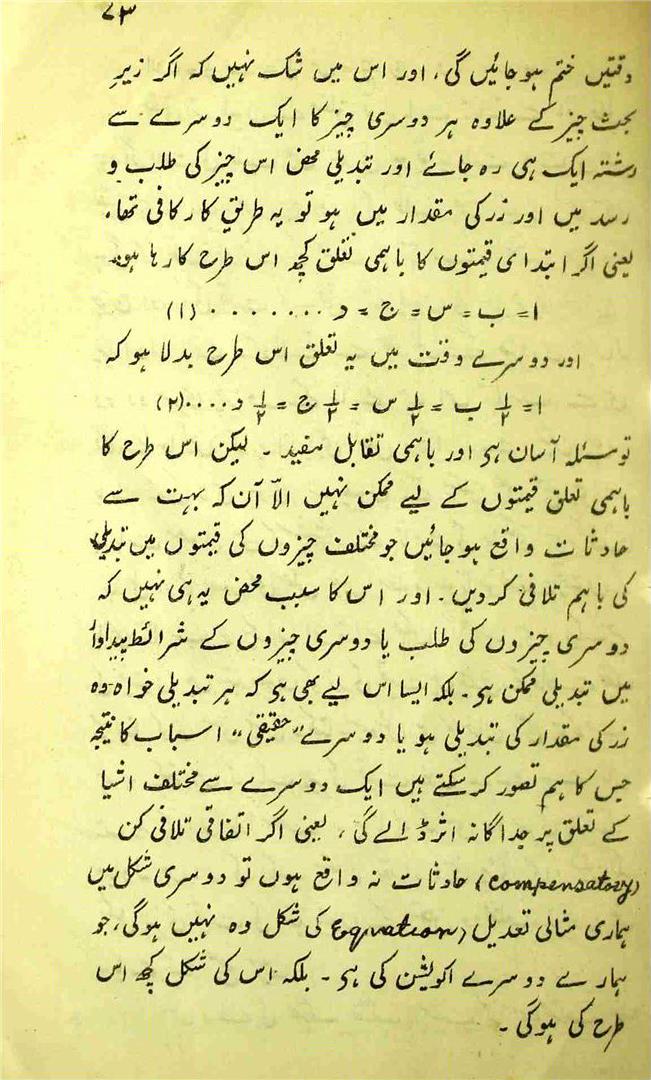 ۷۳
دقتیں ختم ہو جائیں گی، اور اس میں شک نہیں کہ اگر زیرِ
بحث چیز کے علاوہ ہر دوسری چیز کا ایک دوسرے سے
رشتہ ایک ہی رہ جائے اور تبدیلی محض اس چیز کی طلب و
رسد میں اور زر کی مقدار میں ہو تو یہ طریقِ کار کافی تھا۔
یعنی اگر ابتدای قیمتوں کا باہمی تعلق کچھ اس طرح کا رہا ہو۔
ا = ب = س = ج = د ........ (۱)
اور دوسرے وقت میں یہ تعلق اس طرح بدلا ہو کہ
ا = ۱/۲ ب = ۱/۲ س = ۱/۲ ج = ۱/۲ د.....(۲)
تو مسئلہ آسان ہی اور باہمی تقابل مفید ۔ لیکن اس طرح کا
باہمی تعلق قیمتوں کے لیے ممکن نہیں الّا آن کہ بہت سے
حادثات واقع ہو جائیں جو مختلف چیزوں کی قیمتوں میں تبدیلی
کی باہم تلافی کر دیں۔ اور اس کا سبب محض یہ ہی نہیں کہ
دوسری چیزوں کی طلب یا دوسری چیزوں کے شرائط پیداوار
میں تبدیلی ممکن ہی ۔ بلکہ ایسا اس لیے بھی ہی کہ ہر تبدیلی خواہ وہ
زر کی مقدار کی تبدیلی ہو یا دوسرے "حقیقی" اسباب کا نتیجہ
جس کا ہم تصور کر سکتے ہیں ایک دوسرے سے مختلف اشیا
کے تعلق پر جداگانہ اثر ڈالے گی، یعنی اگر اتفاقی تلافی کن
(Compensatory) حادثات نہ واقع ہوں تو دوسری شکل میں
ہماری مثالی تعدیل (Equation) کی شکل وہ نہیں ہوگی، جو
ہمارے دوسرے اکویشن کی ہی ۔ بلکہ اس کی شکل کچھ اس
طرح کی ہوگی ۔